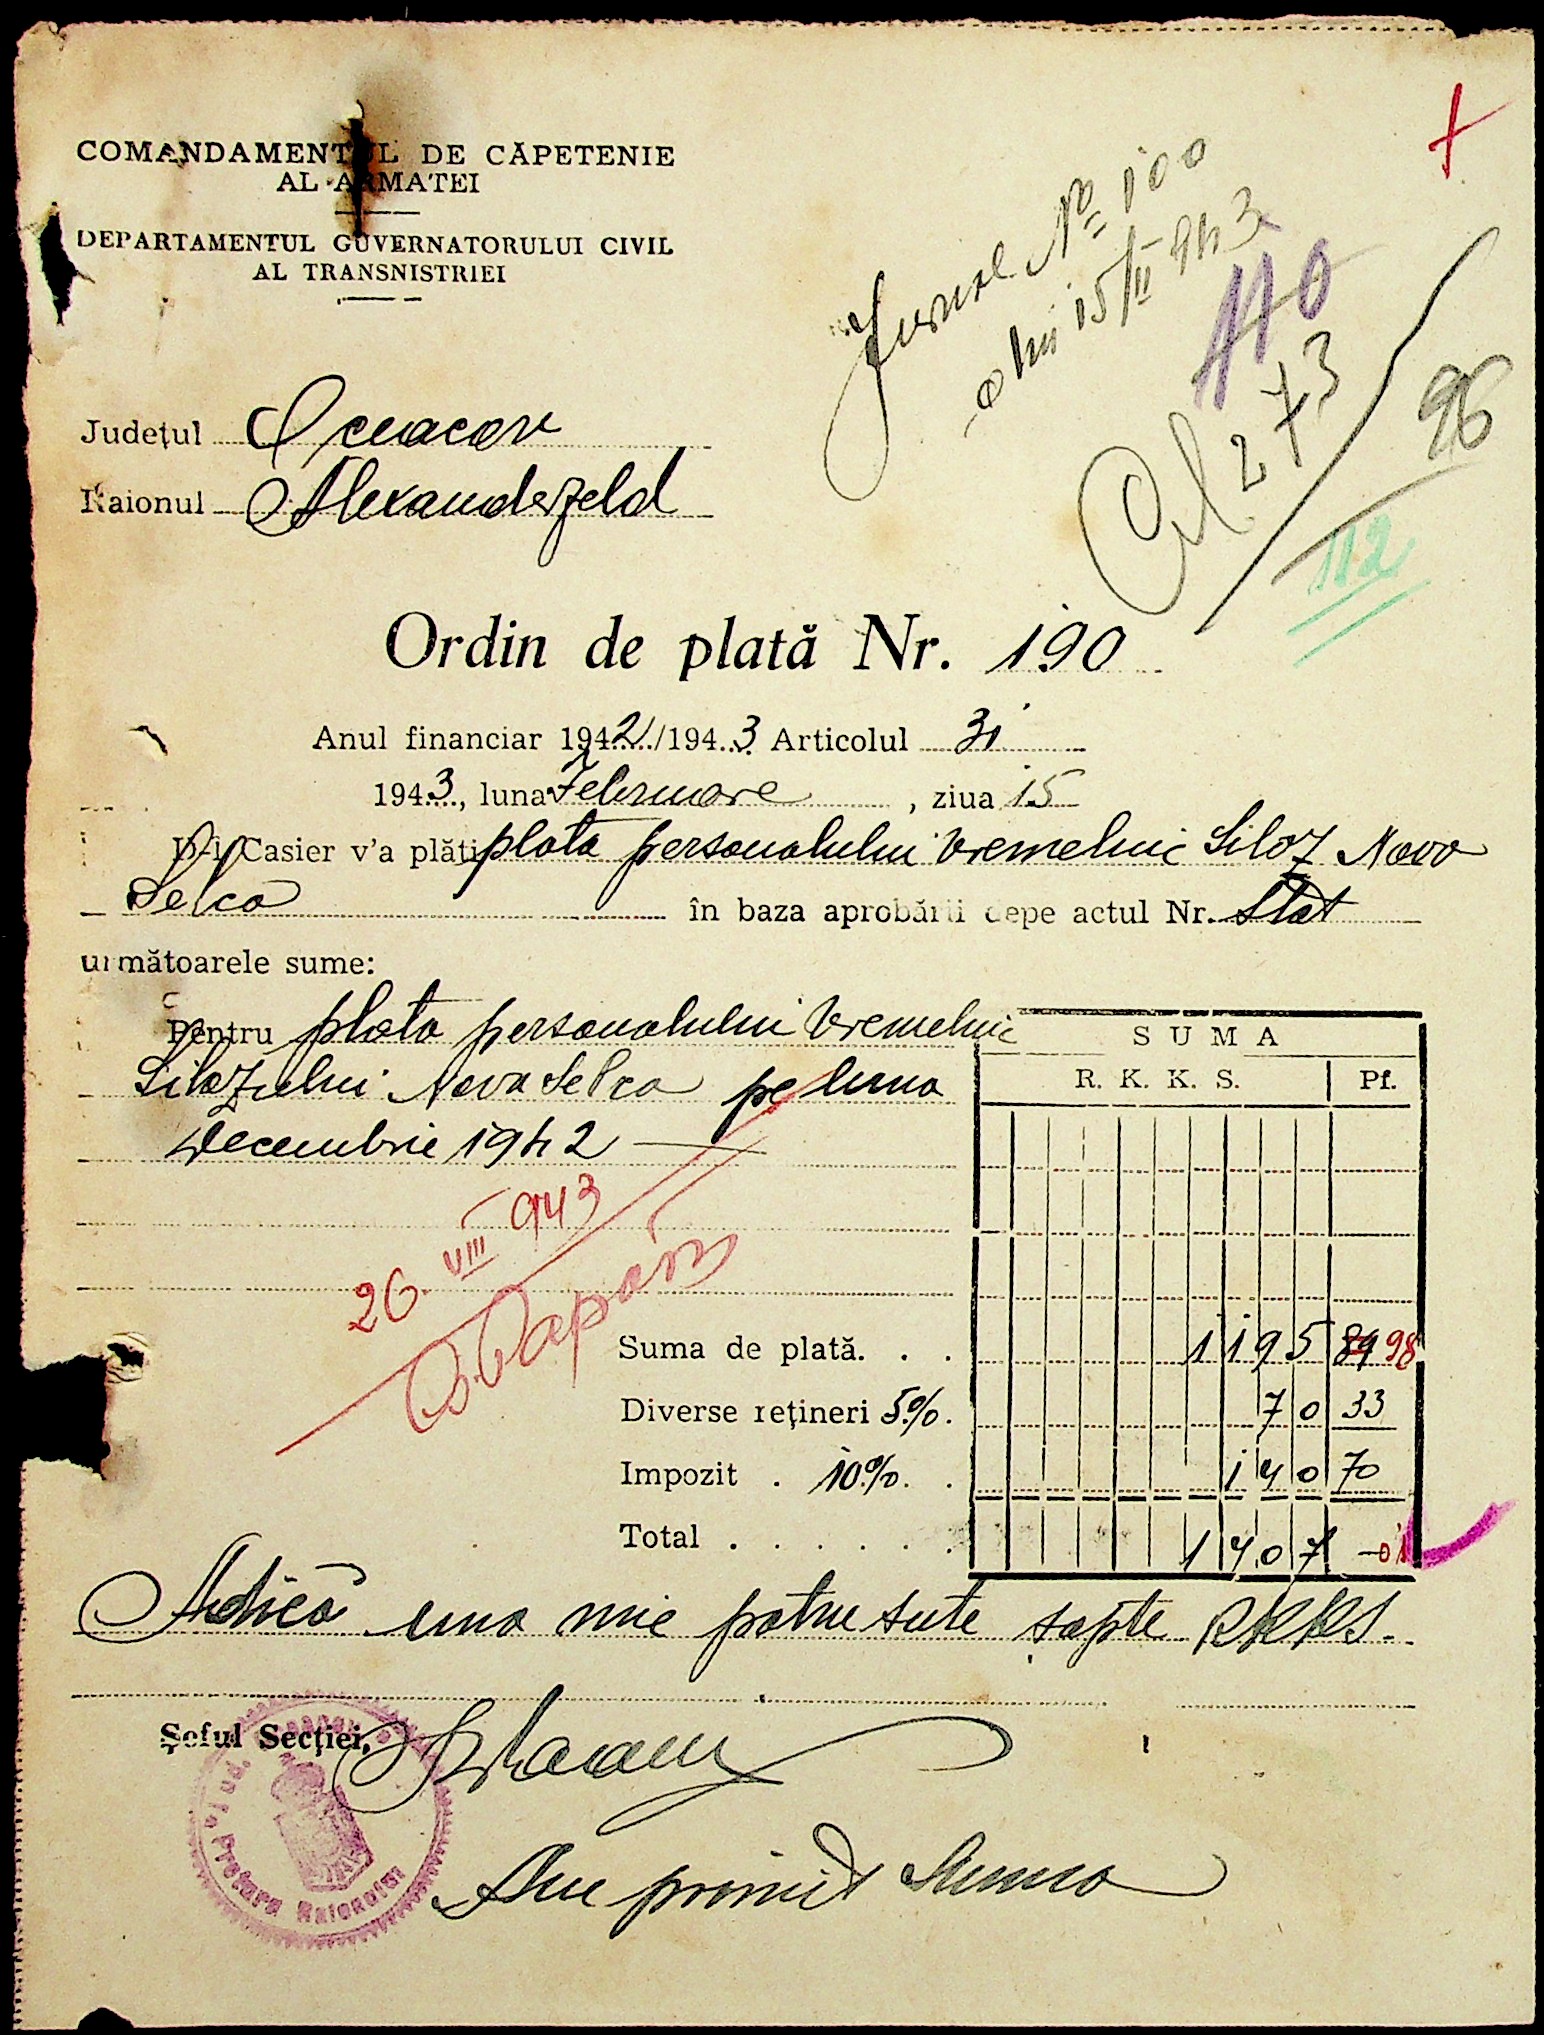 COMANDAMENTUL DE CĂPETENIE
AL ARMATEI
DEPARTAMENTUL GUVERNATORULUI CIVIL
AL TRANSNISTRIEI
+
Jurnal No 100
a lui 15/II 943
110
273
96
112
Județul Oceacov
Raionul Alexanderfeld
Ordin de plată Nr. 190
Anul financiar 1942/1943 Articolul 31
1943, luna Februare, ziua 15
D-l Casier v'a plăti plata personalului vremelnic Siloz Nova
Selca în baza aprobării depe actul Nr. Stat
următoarele sume:
Pentru plata personalului vremelnic
Silozului Nova Selca pe luna
Decembrie 1942
SUMA
R. K. K. S. Pf.
26. VIII 943
Suma de plată. . . 1195 89 98
Diverse rețineri 5%. 70 33
Impozit . 10%. . 140 70
Total . . . . . . 1407 - 01
Adică una mie patru sute șapte RKKS.
Șeful Secției,
Pretura Raionului
Am primit suma